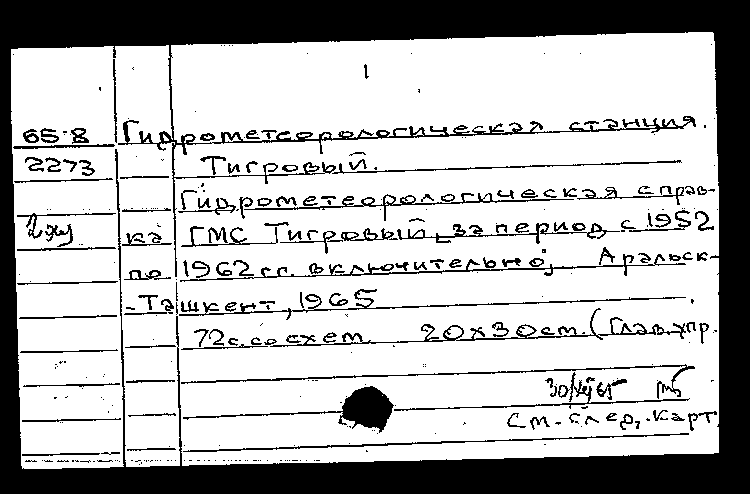 1
65-8 Гидрометеорологическая станция.
2273 Тигровый.
Гидрометеорологическая справ-
2экз ка ГМС Тигровый за период с 1952
по 1962 гг. включительно; Аральск-
-Ташкент, 1965
72с. со схем. 20x30см. (Глав. упр.
30/XII 65
См. след. карт.